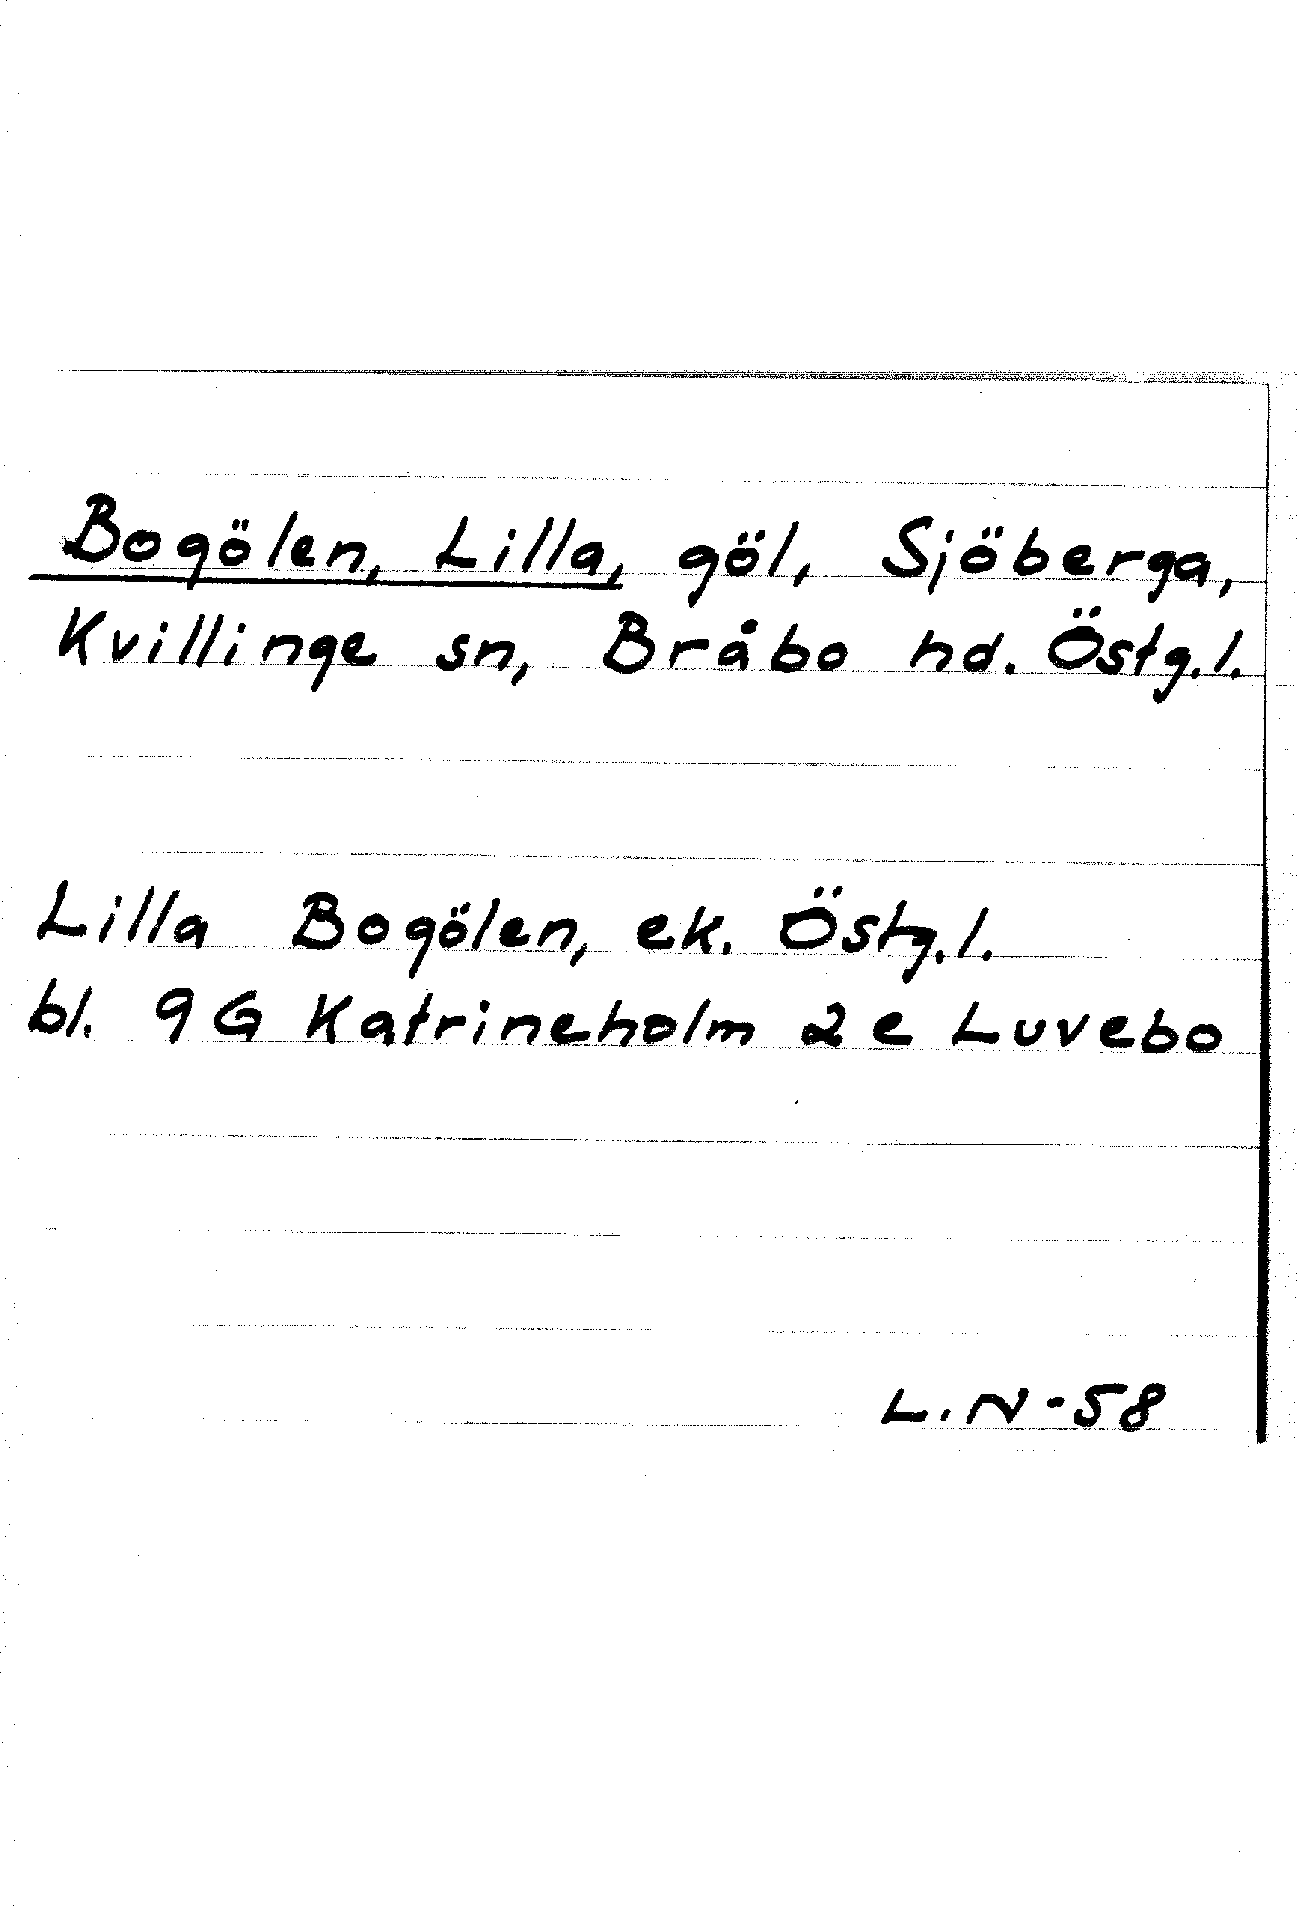 Bogölen, Lilla, göl, Sjöberga,
Kvillinge sn, Bråbo hd. Östg.l.
Lilla Bogölen, ek. Östg.l.
bl. 9G Katrineholm 2e Luvebo
L.N-58